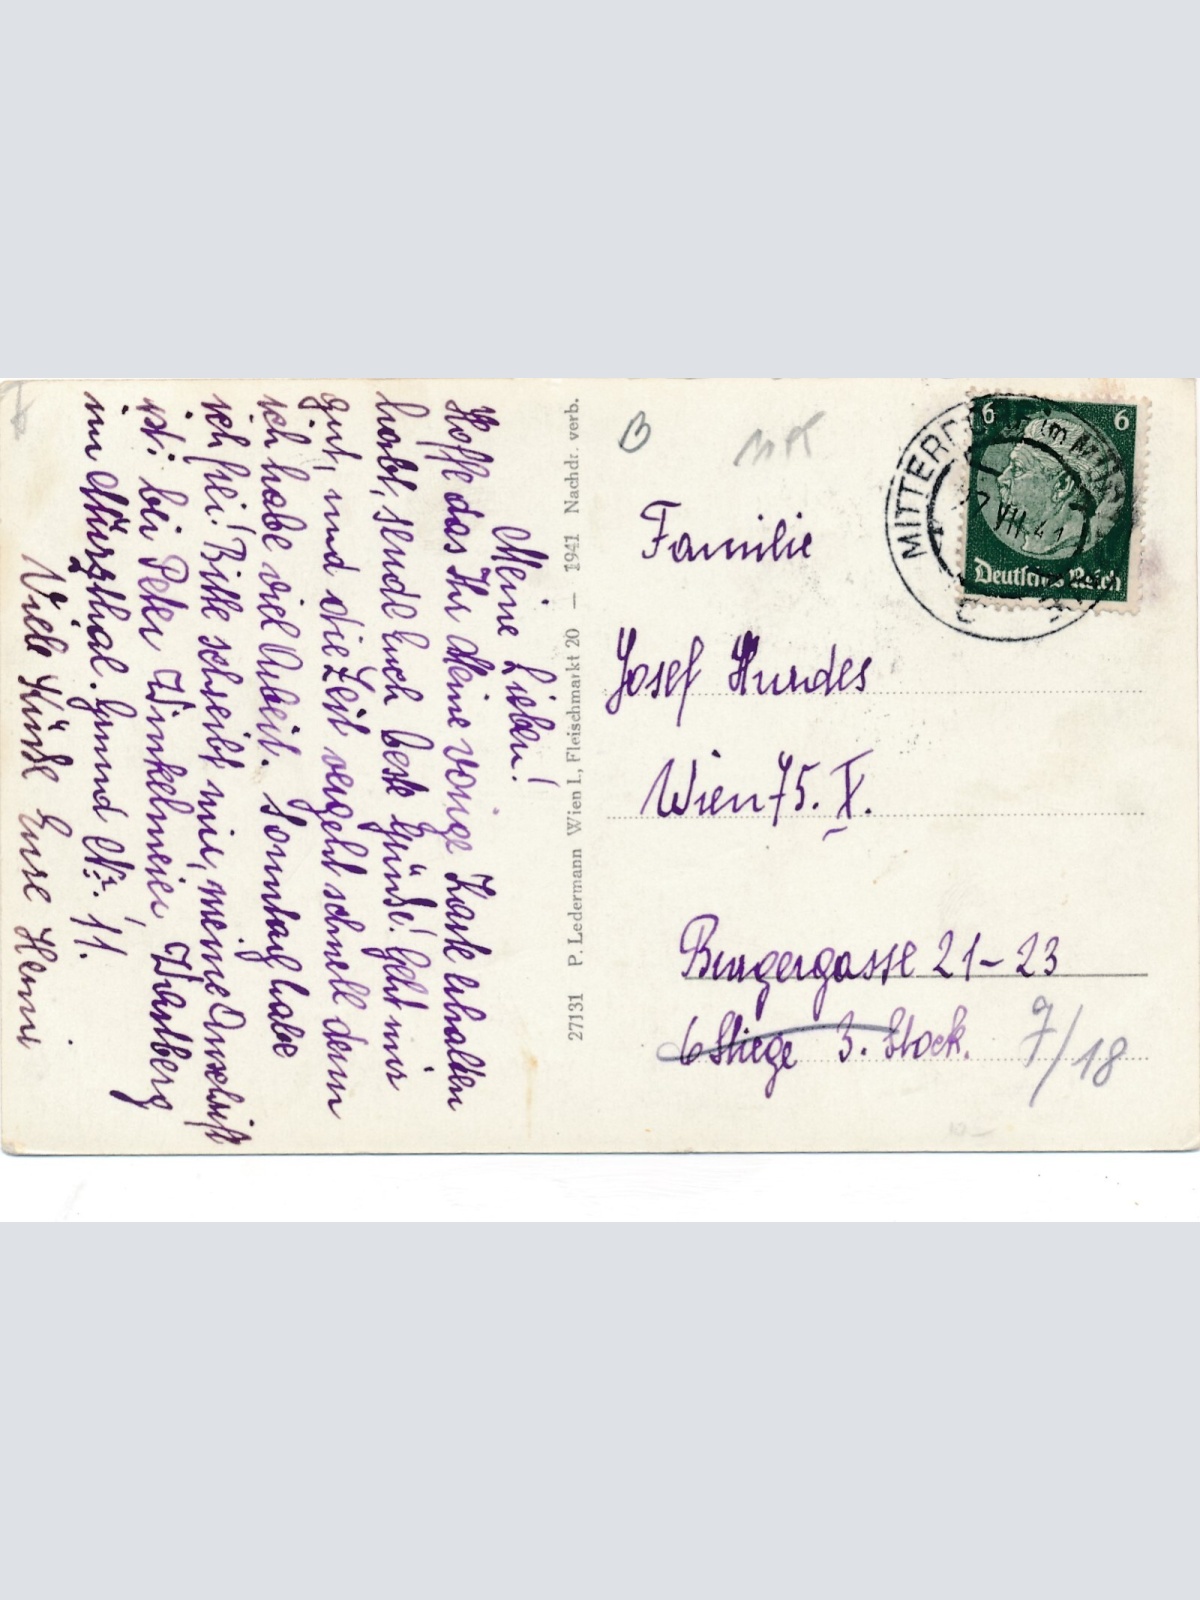 Meine Lieben!
Hoffe das Ihr meine vorige Karte erhalten
habt, sende Euch beste Grüße! Geht mir
gut, und die Zeit vergeht schnell denn
ich habe viel Arbeit. Sonntag habe
ich frei! Bitte schreibt mir, meine Anschrift
ist: bei Peter Winkelmeier Wartberg
im Mürzthal. Grund Nr. 11.
Viele Küße Eure Henni
27131 P. Ledermann Wien I., Fleischmarkt 20 — 1941 Nachdr. verb.
B
6 6
Deutsches Reich
MITTERD im MÜRZ
VII. 41
Familie
Josef Hurdes
Wien 75. X.
Burgergasse 21-23
6 Stiege 3. Stock. 7/18